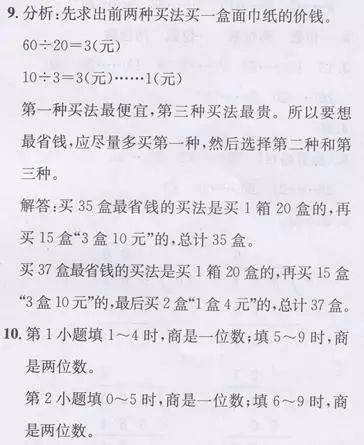 9. 分析:先求出前两种买法买一盒面巾纸的价钱。
60÷20=3(元)
10÷3=3(元)……1(元)
第一种买法最便宜,第三种买法最贵。所以要想
最省钱,应尽量多买第一种,然后选择第二种和第
三种。
解答:买 35 盒最省钱的买法是买 1 箱 20 盒的,再
买 15 盒“3 盒 10 元”的,总计 35 盒。
买 37 盒最省钱的买法是买 1 箱 20 盒的,再买 15 盒
“3 盒 10 元”的,最后买 2 盒“1 盒 4 元”的,总计 37 盒。
10. 第 1 小题填 1～4 时,商是一位数;填 5～9 时,商
是两位数。
第 2 小题填 0～5 时,商是一位数;填 6～9 时,商
是两位数。